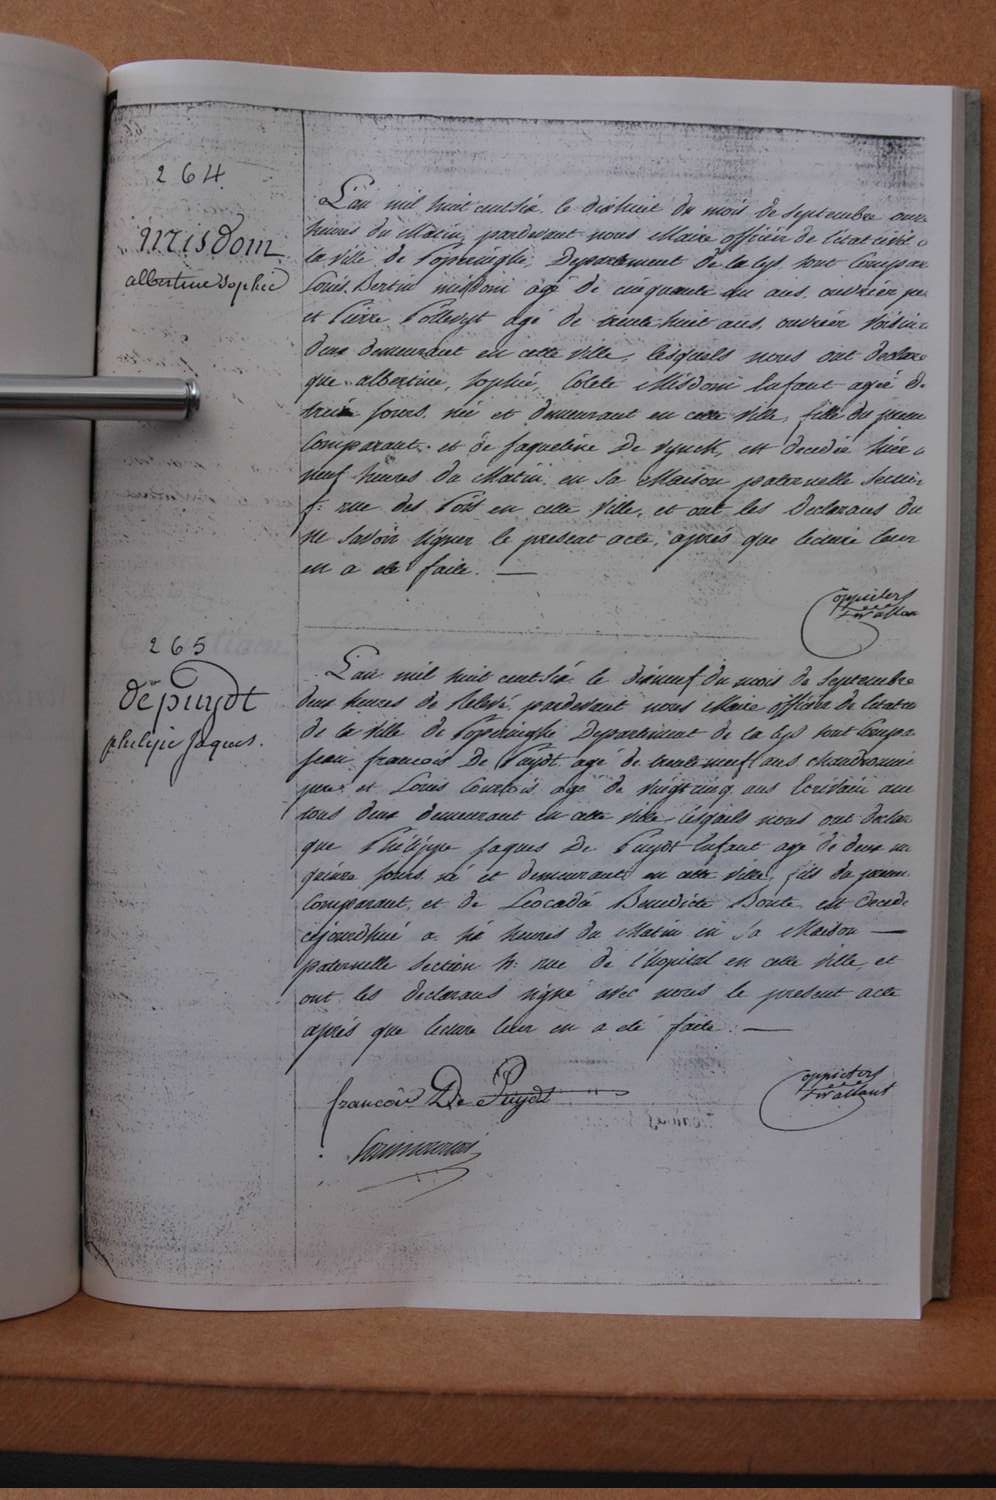 264
Misdom
albertine Sophie
L'an mil huit cent six le dixhuit du mois de Septembre onze
heures du Matin, pardevant nous Maire officier de l'état civil
la ville de Poperinghe, Departement de la Lys sont Compar
Louis Bertin misdom agé de cinquante ans, ouvrier pe
et Pierre agé de trente huit ans, ouvrier Voisin
deux demeurant en cette ville, lesquels nous ont declare
que albertine, Sophie, Colete Misdom Enfant agée de
treize jours, née et demeurant en cette ville, fille du prem
Comparant, et de Jaqueline De Vynck, est decedée hier
neuf heures du Matin en sa Maison paternelle Section
f: rue des Pots en cette Ville, et ont les Declarans du
ne Savoir signer le present acte, après que lecture leur
en a eté faite. —
265
depuydt
philipe Jaques.
L'an mil huit cent six le dixneuf du mois de Septembre
deux heures de Relevé, pardevant nous Maire officier de l'etat
de la ville de Poperinghe Departement de la Lys sont Compar
jean francois De Puydt agé de trente neuf ans chaudronnie
pere et Louis Courtois agé de vingtcinq ans Ecrivain
tous deux demeurant en cette ville, lesquels nous ont declar
que Philippe Jaques De Puydt Enfant agé de deux m
quinze jours, né et demeurant en cette Ville, fils du prem
Comparant, et de Leocade Benedicte Bonte est decede
cejourdhui a six heures du Matin en Sa Maison —
paternelle Section h: rue de l'hopital en cette ville, et
ont les declarans signé avec nous le present acte
après que lecture leur en a eté faite. —
francois De Puydt